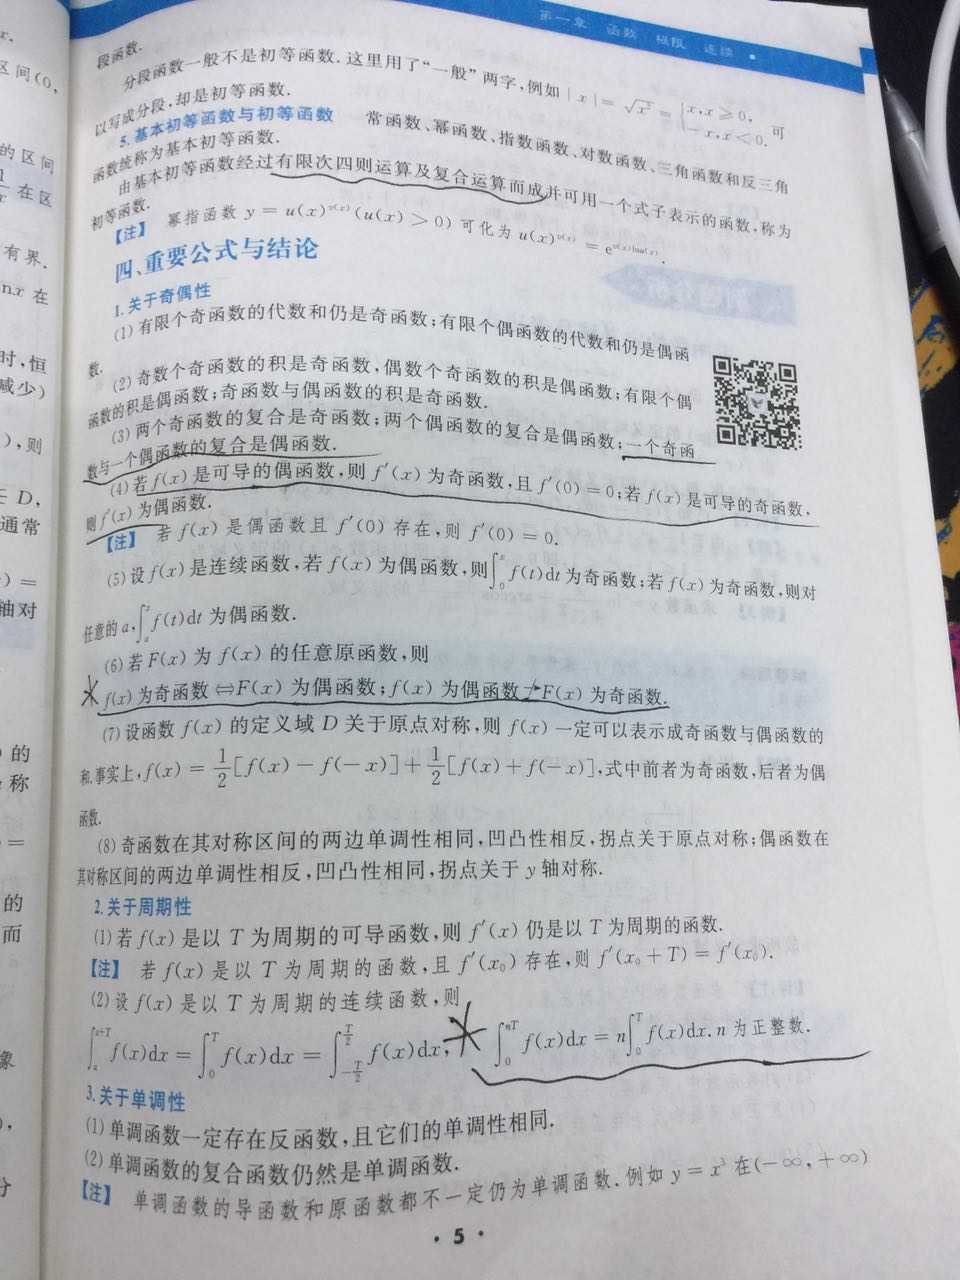 第一章 函数 极限 连续
段函数.
分段函数一般不是初等函数.这里用了“一般”两字,例如|x|=√x²={x,x≥0, -x,x<0. 可
以写成分段,却是初等函数.
5.基本初等函数与初等函数 常函数、幂函数、指数函数、对数函数、三角函数和反三角
函数统称为基本初等函数.
由基本初等函数经过有限次四则运算及复合运算而成并可用一个式子表示的函数,称为
初等函数.
【注】 幂指函数 y=u(x)^{v(x)}(u(x)>0)可化为 u(x)^{v(x)}=e^{v(x)lnu(x)}.
四、重要公式与结论
1.关于奇偶性
(1)有限个奇函数的代数和仍是奇函数;有限个偶函数的代数和仍是偶函
数.
(2)奇数个奇函数的积是奇函数,偶数个奇函数的积是偶函数;有限个偶
函数的积是偶函数;奇函数与偶函数的积是奇函数.
(3)两个奇函数的复合是奇函数;两个偶函数的复合是偶函数;一个奇函
数与一个偶函数的复合是偶函数.
(4)若f(x)是可导的偶函数,则f′(x)为奇函数,且f′(0)=0;若f(x)是可导的奇函数,
则f′(x)为偶函数.
【注】 若f(x)是偶函数且f′(0)存在,则f′(0)=0.
(5)设f(x)是连续函数,若f(x)为偶函数,则∫₀ˣf(t)dt为奇函数;若f(x)为奇函数,则对
任意的a,∫ₐˣf(t)dt为偶函数.
(6)若F(x)为f(x)的任意原函数,则
f(x)为奇函数⇔F(x)为偶函数;f(x)为偶函数⇍F(x)为奇函数.
(7)设函数f(x)的定义域D关于原点对称,则f(x)一定可以表示成奇函数与偶函数的
和.事实上,f(x)=1/2[f(x)-f(-x)]+1/2[f(x)+f(-x)],式中前者为奇函数,后者为偶
函数.
(8)奇函数在其对称区间的两边单调性相同,凹凸性相反,拐点关于原点对称;偶函数在
其对称区间的两边单调性相反,凹凸性相同,拐点关于y轴对称.
2.关于周期性
(1)若f(x)是以T为周期的可导函数,则f′(x)仍是以T为周期的函数.
【注】 若f(x)是以T为周期的函数,且f′(x₀)存在,则f′(x₀+T)=f′(x₀).
(2)设f(x)是以T为周期的连续函数,则
∫_a^{a+T}f(x)dx=∫_0^T f(x)dx=∫_{-T/2}^{T/2}f(x)dx, ∫_0^{nT}f(x)dx=n∫_0^T f(x)dx.n为正整数.
3.关于单调性
(1)单调函数一定存在反函数,且它们的单调性相同.
(2)单调函数的复合函数仍然是单调函数.
【注】 单调函数的导函数和原函数都不一定仍为单调函数.例如y=x³在(-∞,+∞)
·5·